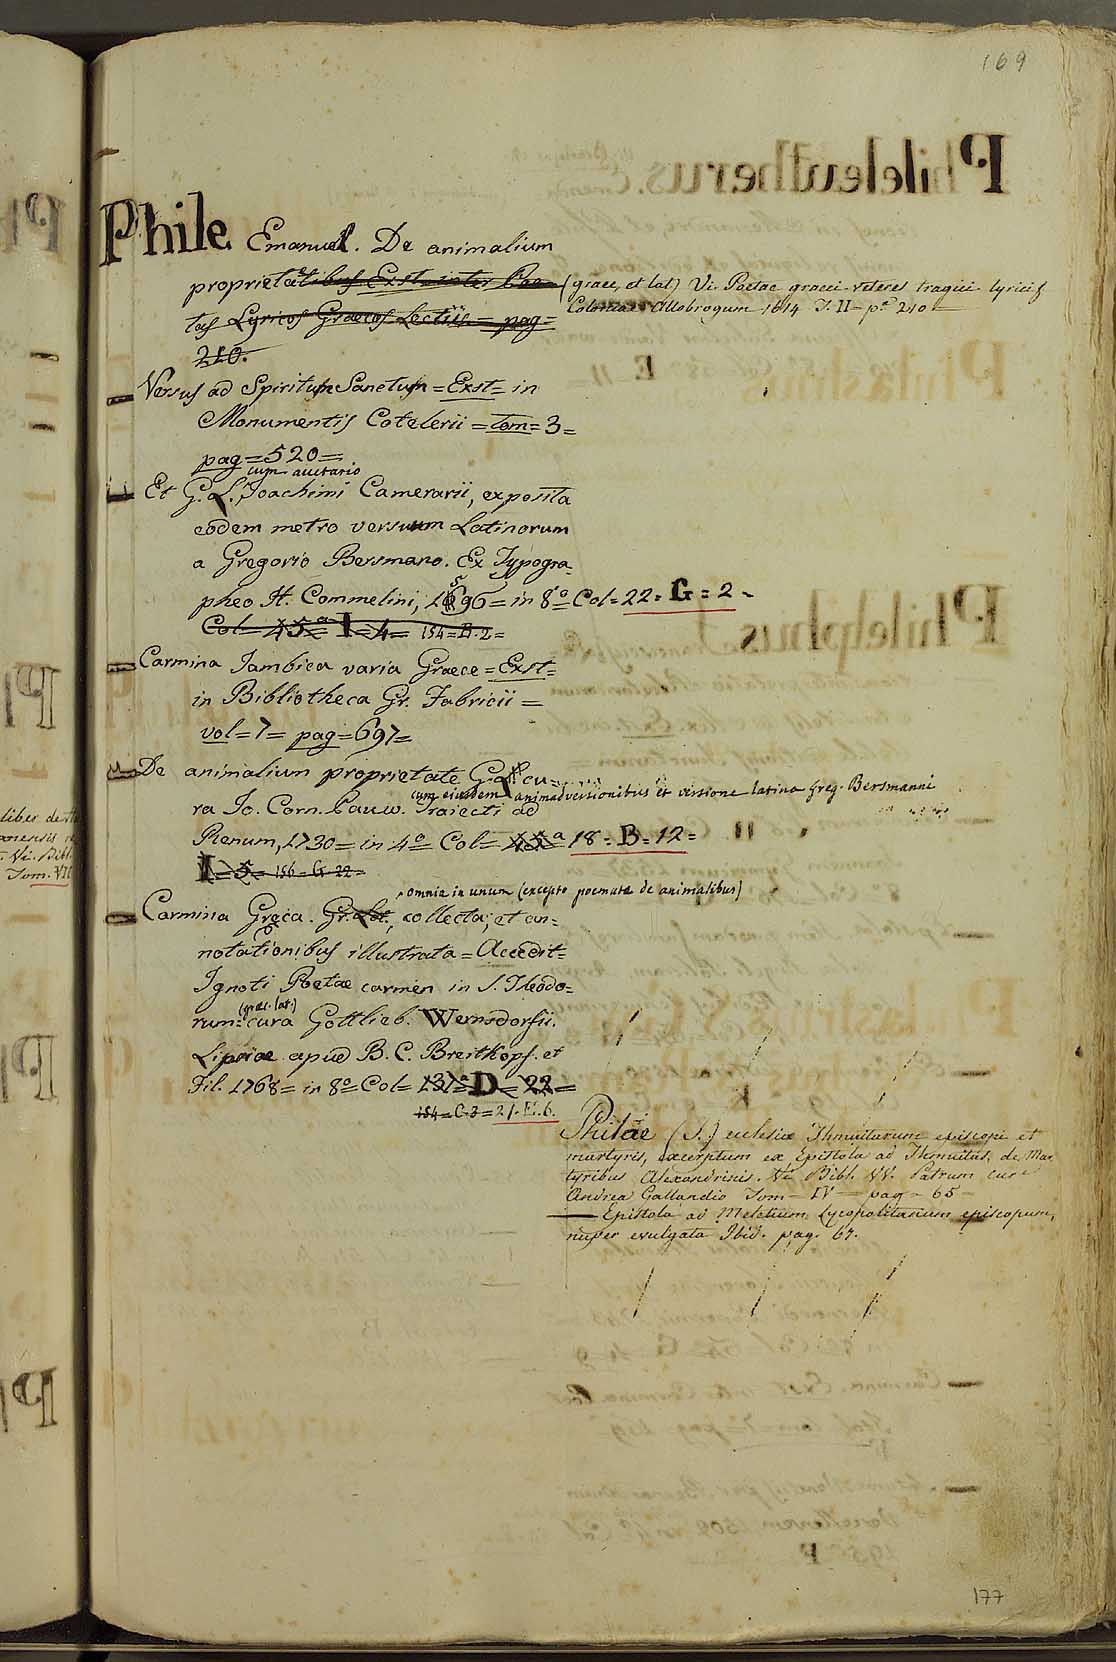 169
Phile Emanuel. De animalium
proprietatibus Exst= inter Poe= (graec, et lat) Vi. Poetae graeci veteres tragici lyrici &
tas Lyricos Graecos Lectiis = pag= Coloniae Allobrogum 1614 T. II- pᵃ 210-
210.
Versus ad Spiritum Sanctum = Exst= in
Monumentis Cotelerii = tom= 3=
pag= 520=
cum auctario
Et G. L. Joachimi Camerarii, exposita
eodem metro versuum Latinorum
a Gregorio Bersmano. Ex Typogra=
pheo H. Commelini, 1596= in 8º= Col= 22= G= 2-
Col= 45ª= I= 4= 154= B. 2=
Carmina Iambica varia Graece= Exst=
in Bibliotheca Gr. Fabricii=
vol= 7= pag= 697=
De animalium proprietate G. cu=
cum eiusdem animadversionibus et versione latina Greg. Bersmanni
ra Jo. Corn. Pauw. Traiecti ad
Rhenum, 1730= in 4º= Col= 45ª 18= B= 12=
I= 5= 156- G- 22=
omnia in unum (excepto poemate de animalibus)
Carmina Græca. Gr. Lat., collecta, et an=
notationibus illustrata= Accedit=
Ignoti Poetae carmen in S. Theodo=
(græc. lat.)
rum= cura Gottlieb. Wernsdorfii.
Lipsiae apud B. C. Breitkopf. et
Fil. 1768= in 8º= Col= 137ª= D= 22=
154= C-3= 21. E. 6.
Phileæ (S.) ecclesiæ Thmuitarum episcopi et
martyris, excerptum ex Epistola ad Thmuitas, de Mar
tyribus Alexandrinis. Vi Bibl. VV. Patrum cura
Andrea Gallandio Tom- IV- pag- 65-
— Epistola ad Meletium Lycopolitanum episcopum,
nuper evulgata Ibid. pag. 67.
177